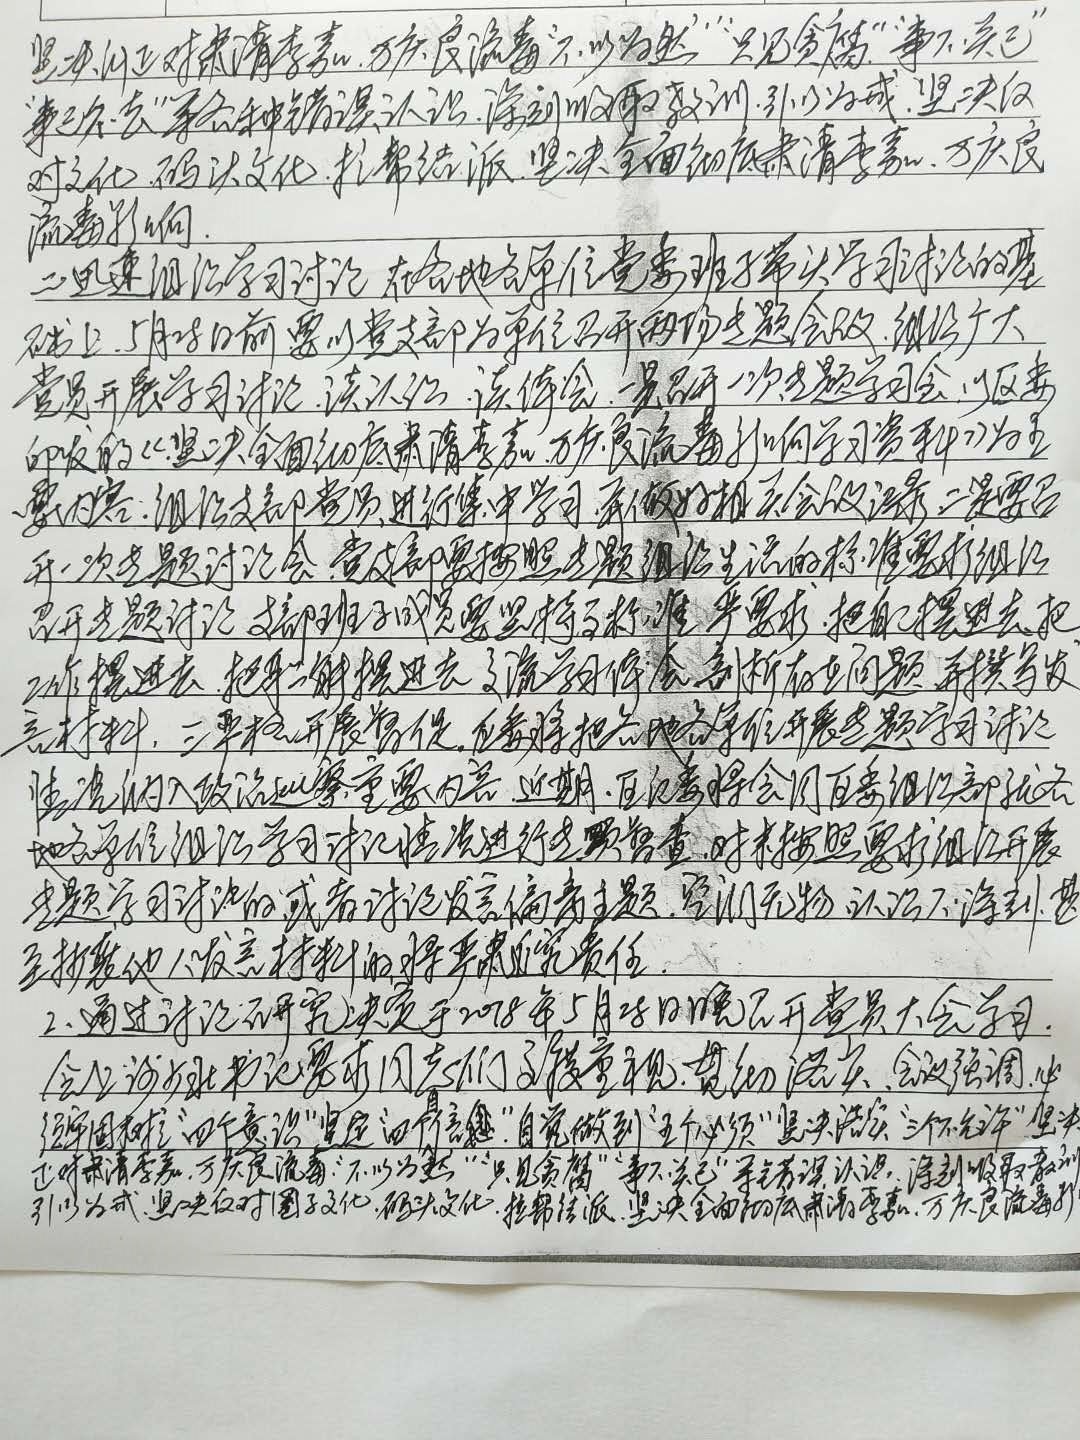 坚决纠正对肃清李嘉、万庆良流毒"不以为然""只见贪腐""事不关己"
"事过久去"等各种错误认识,深刻吸取教训,引以为戒,坚决反
对文化、码头文化、拉帮结派,坚决全面彻底肃清李嘉、万庆良
流毒影响。
二迅速组织学习讨论,在各地各单位党委班子带头学习讨论的基
础上,5月28日前要以党支部为单位召开两场专题会议,组织广大
党员开展学习讨论,谈认识、谈体会,一是召开一次专题学习会,以区委
印发的《坚决全面彻底肃清李嘉、万庆良流毒影响学习资料》为主
要内容,组织支部党员进行集中学习,并做好相关会议记录,二是要召
开一次专题讨论会,党支部要按照专题组织生活的标准要求组织
召开专题讨论,支部班子成员要坚持高标准严要求,把自己摆进去、把
工作摆进去、把职责摆进去,交流学习体会,剖析存在问题,并撰写发
言材料。三严格开展督促。区委将把各地各单位开展专题学习讨论
情况纳入政治巡察重要内容,近期,区纪委将会同区委组织部就各
地各单位组织学习讨论情况进行专题督查,对未按照要求组织开展
专题学习讨论的,或者讨论发言偏离主题、空洞无物、认识不深刻,甚
至抄袭他人发言材料的,将严肃追究责任。
2、通过讨论研究,决定于2018年5月28日晚召开党员大会学习。
会上,书记要求同志们高度重视,贯彻落实,会议强调,必
须牢固树立"四个意识"坚定"四个自信",自觉做到"五个必须"坚决落实"三个不允许"坚决
正对肃清李嘉、万庆良流毒"不以为然""只见贪腐""事不关己"等错误认识,深刻吸取教训
引以为戒,坚决反对圈子文化、码头文化、拉帮结派,坚决全面彻底肃清李嘉、万庆良流毒影